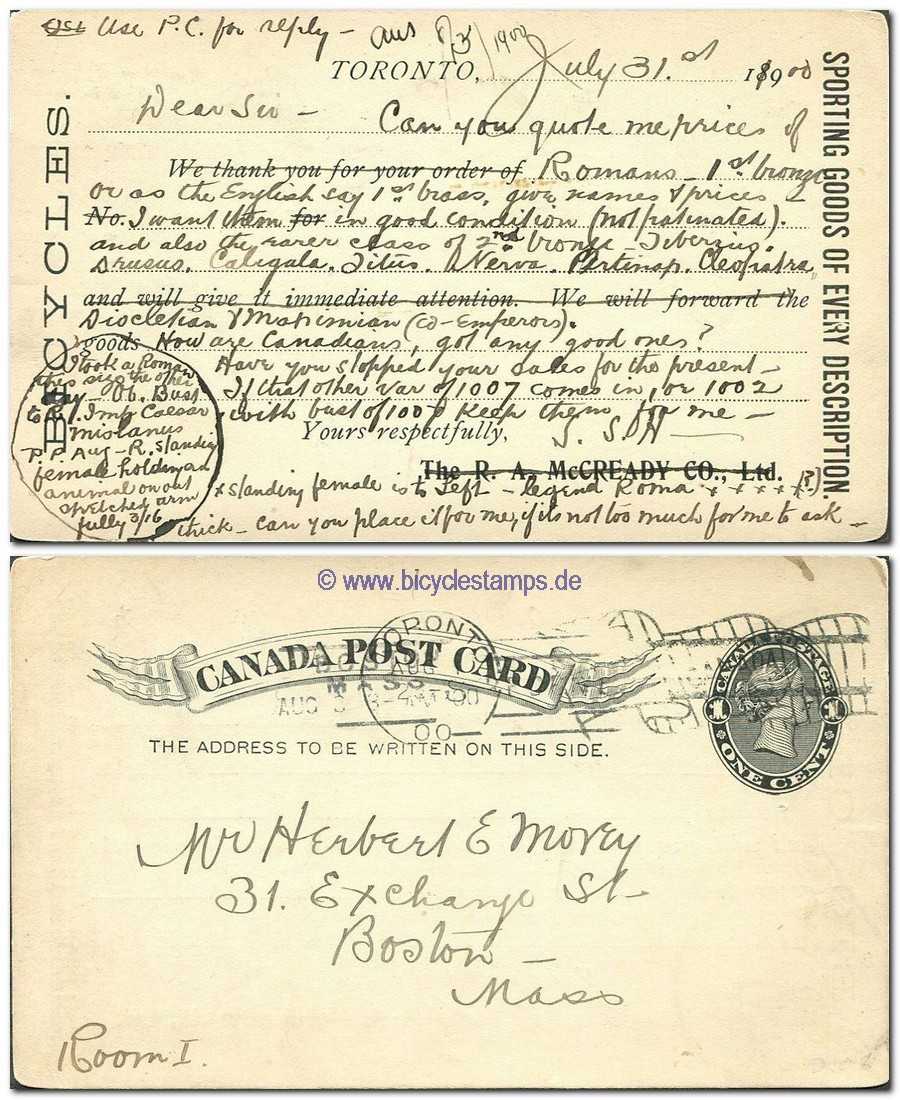 Use P.C. for reply - ans
1900
TORONTO, July 31.st 1900
Dear Sir - Can you quote me prices of
We thank you for your order of Romans - 1st bronze
or as the English say 1st brass, give names & prices -
No. I want them for in good condition (not patinated).
and also the rarer class of 2nd bronze - Tiberius.
Drusus. Caligula. Titus. Nerva. Pertinap. Cleopatra,
and will give it immediate attention. We will forward the
Diocletian & Maximian (co-Emperors).
goods How are Canadians, got any good ones?
Have you stopped your sales for the present -
If that other var of 1007 comes in, or 1002
with bust of 1007 keep them for me -
Yours respectfully, S. S. H
The R. A. McCREADY CO., Ltd.
BICYCLES.
SPORTING GOODS OF EVERY DESCRIPTION.
Took a Roman
this size the other
day - Ob. Bust
to r. Imp Caesar
P.P Aug - R. standing
female holding an
animal on out
stretched arm
fully 3/16
x standing female is to left - legend Roma x x x x (?)
thick - can you place it for me, if its not too much for me to ask -
© www.bicyclestamps.de
CANADA POST CARD
TORONTO
AUG
00
BOSTON
MASS
AUG 3
THE ADDRESS TO BE WRITTEN ON THIS SIDE.
CANADA POSTAGE
ONE CENT
Mr Herbert E Morey
31. Exchange St-
Boston -
Mass
Room I.